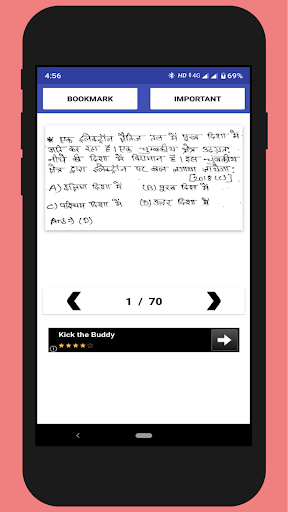 4:56 HD 4G 69%
BOOKMARK IMPORTANT
* एक इलेक्ट्रॉन क्षैतिज तल में पूरब दिशा में
आगे बढ़ रहा है। एक चुम्बकीय क्षेत्र उदग्रतः
नीचे की दिशा में विद्यमान है। इस चुम्बकीय
क्षेत्र द्वारा इलेक्ट्रॉन पर बल लगाया जायेगा:
[2018(C)]
A) दक्षिण दिशा में (B) पूरब दिशा में
C) पश्चिम दिशा में (D) उत्तर दिशा में
Ans→ (D)
1 / 70
Kick the Buddy